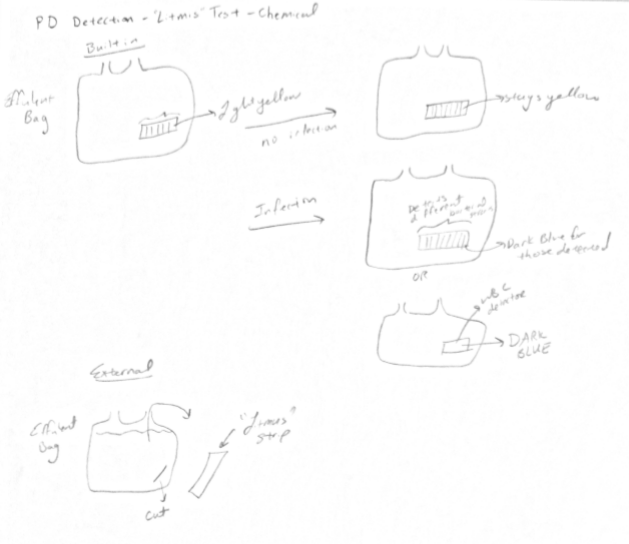 PD Detection - "Litmis" Test - Chemical
Built in
Effulent
Bag
Lightyellow
no infection
stays yellow
Infection
Detects
different
Dark Blue for
those detected
OR
WBC
detector
DARK
BLUE
External
Effulent
Bag
"Litmus"
strip
cut